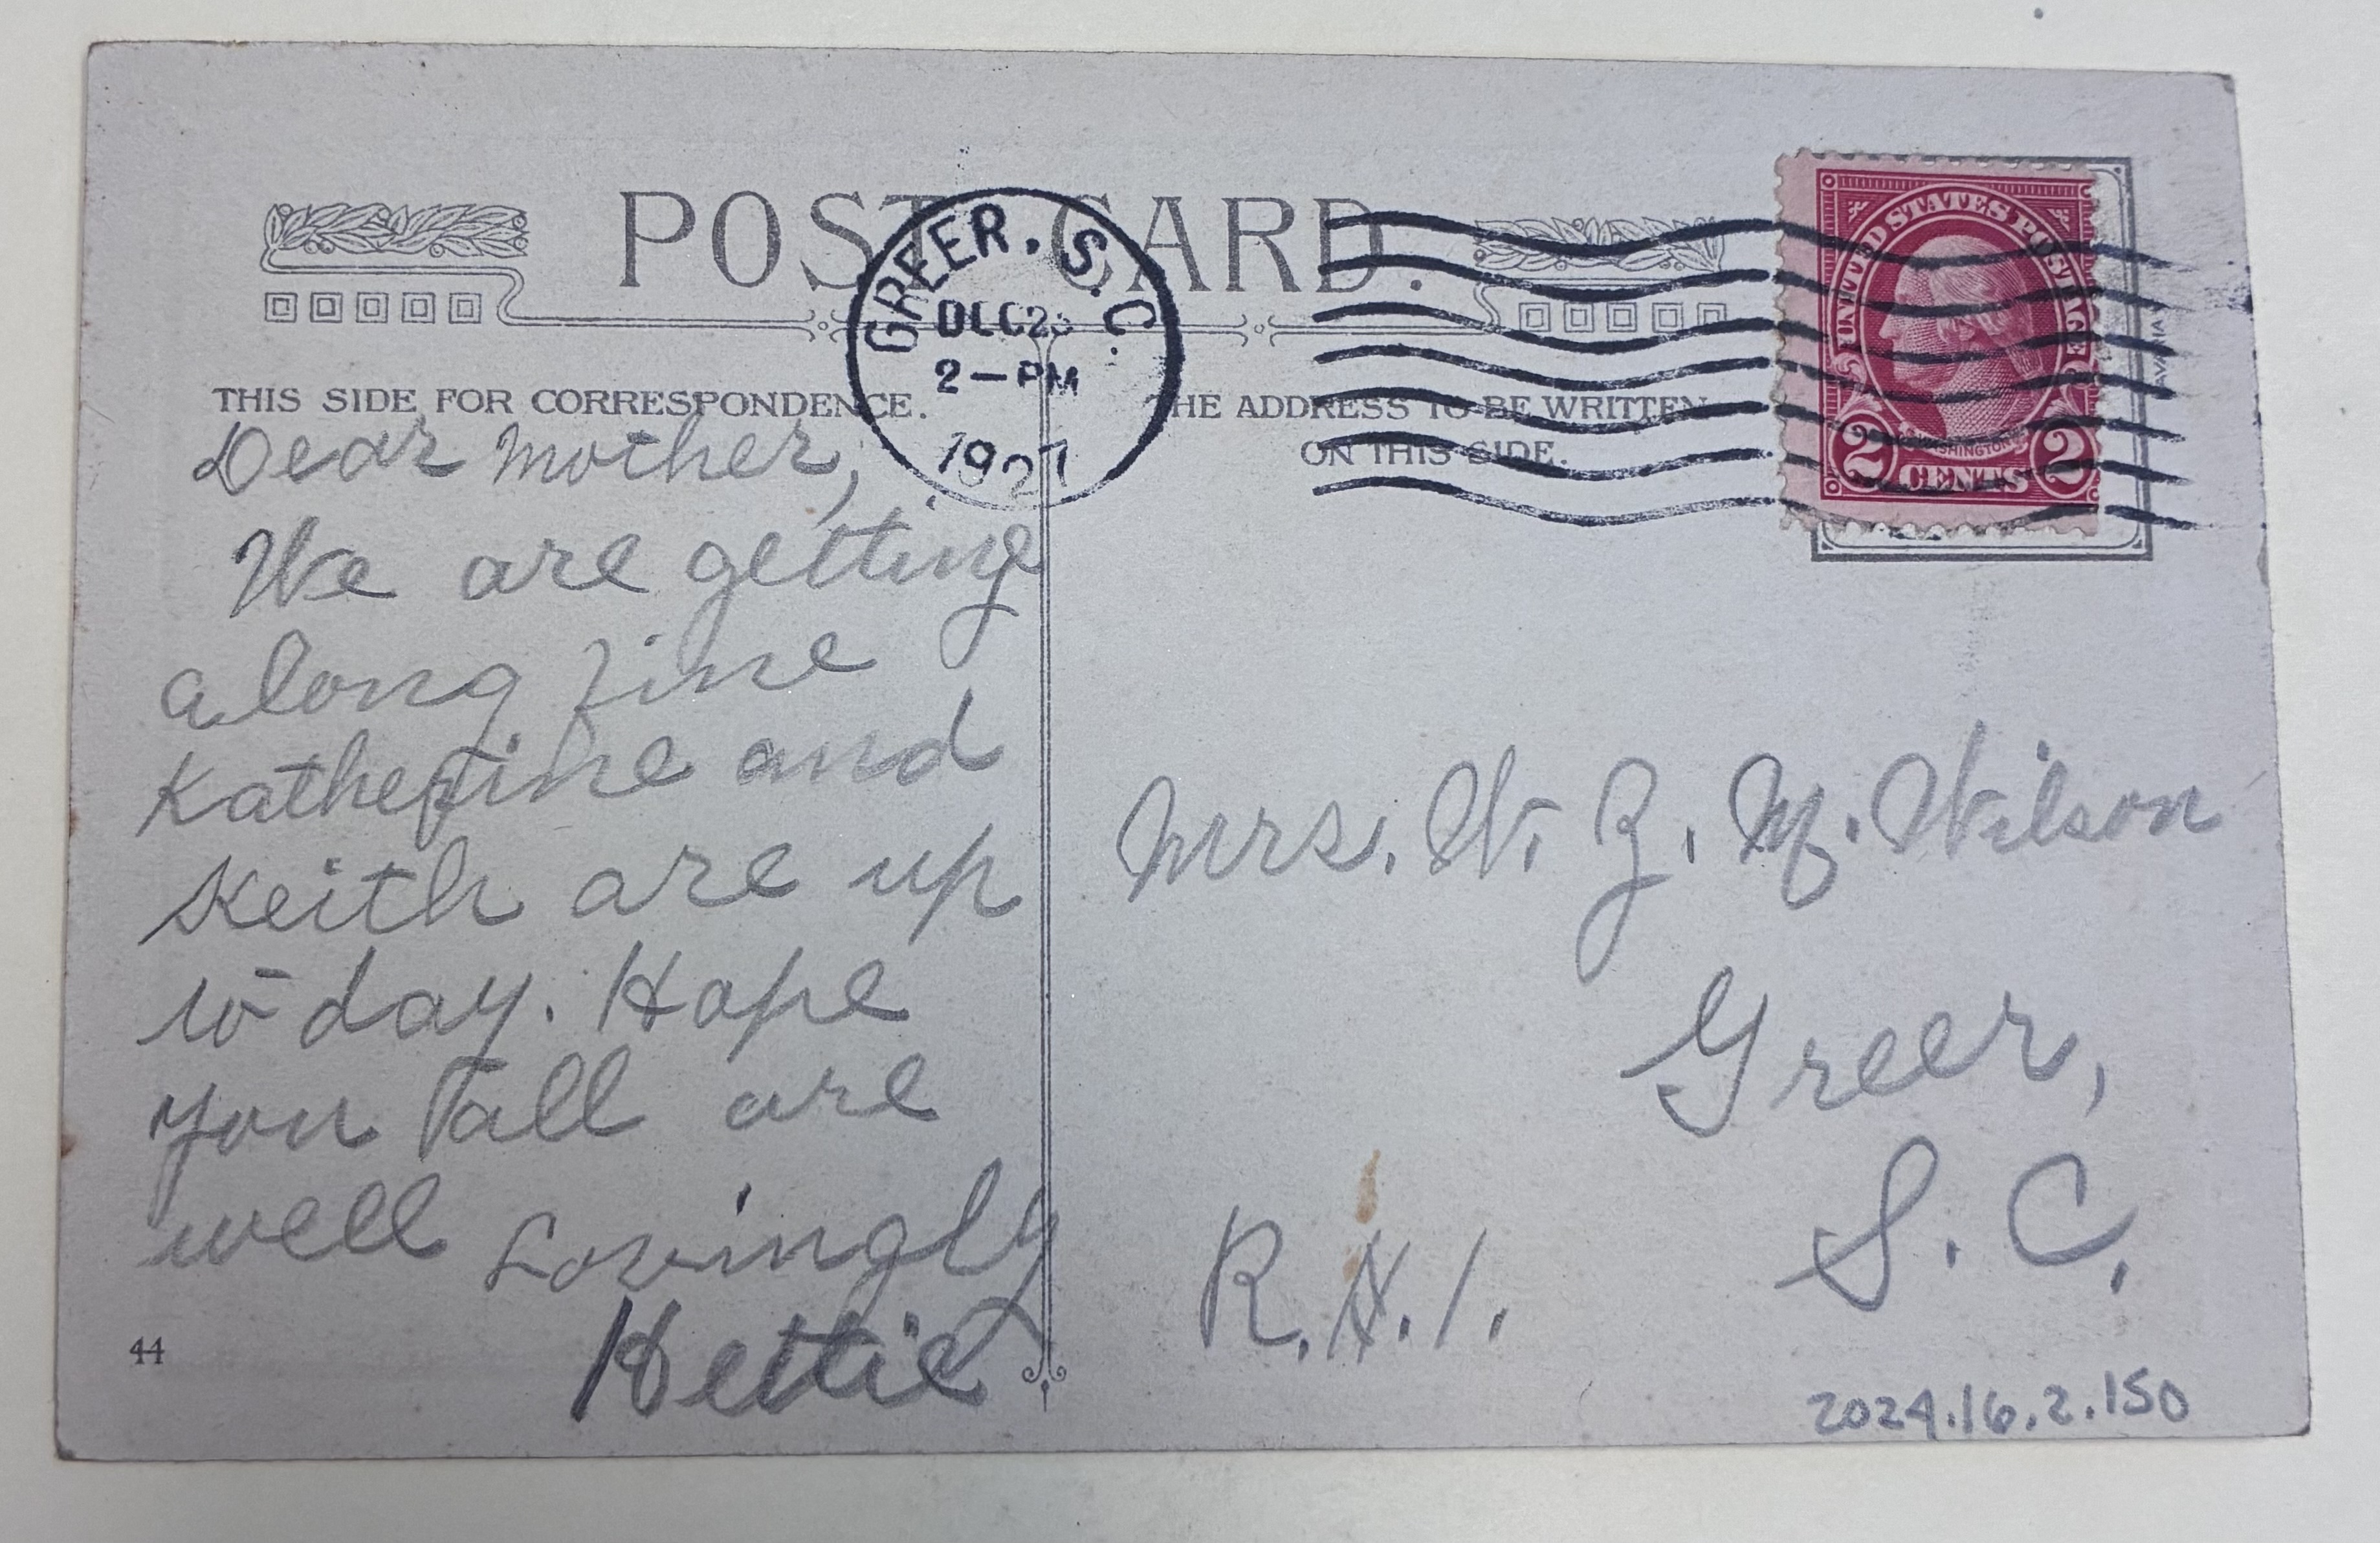 POST CARD.
GREER, S.C.
DEC 2
2-PM
1927
UNITED STATES POSTAGE
WASHINGTON
2 CENTS 2
THIS SIDE FOR CORRESPONDENCE.
THE ADDRESS TO BE WRITTEN
ON THIS SIDE.
Dear Mother,
We are getting
along fine
Katherine and
Keith are up
to-day. Hope
you all are
well Lovingly
Hettie
44
Mrs. W. Z. M. Wilson
Greer,
S. C.
R. #. 1.
2024.16.2.150